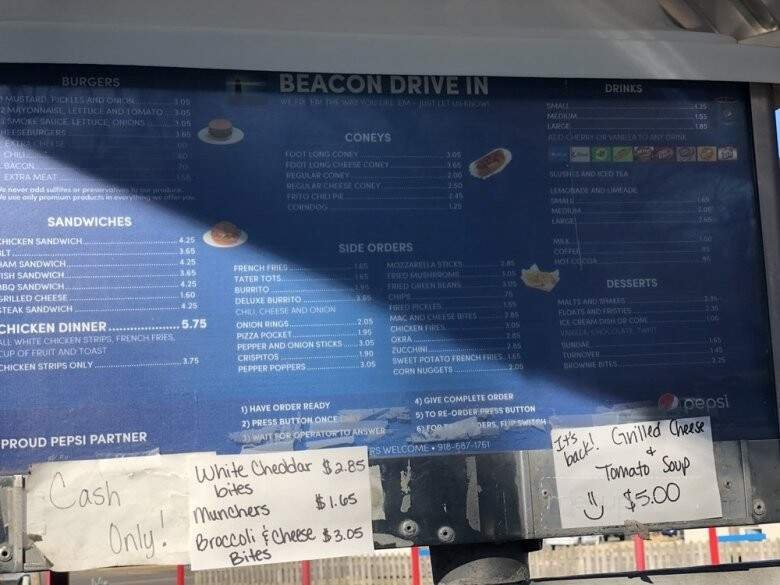 BEACON DRIVE IN
WE FIX 'EM THE WAY YOU LIKE 'EM - JUST LET US KNOW!
BURGERS
MUSTARD, PICKLES AND ONION 3.05
2 MAYONNAISE, LETTUCE AND TOMATO 3.05
SMOKE SAUCE, LETTUCE, ONIONS 3.05
CHEESEBURGERS 3.65
EXTRA CHEESE
CHILI
BACON
EXTRA MEAT
We never add sulfites or preservatives to our produce.
We use only premium products in everything we offer you.
SANDWICHES
CHICKEN SANDWICH 4.25
BLT 3.65
HAM SANDWICH 4.25
FISH SANDWICH 3.65
BBQ SANDWICH 4.25
GRILLED CHEESE 1.60
STEAK SANDWICH 4.25
CHICKEN DINNER 5.75
ALL WHITE CHICKEN STRIPS, FRENCH FRIES,
CUP OF FRUIT AND TOAST
CHICKEN STRIPS ONLY 3.75
PROUD PEPSI PARTNER
CONEYS
FOOT LONG CONEY 3.05
FOOT LONG CHEESE CONEY 3.65
REGULAR CONEY 2.00
REGULAR CHEESE CONEY 2.50
FRITO CHILI PIE 2.45
CORNDOG 1.25
SIDE ORDERS
FRENCH FRIES 1.65
TATER TOTS 1.65
BURRITO 1.95
DELUXE BURRITO 3.85
CHILI, CHEESE AND ONION
ONION RINGS 2.05
PIZZA POCKET 1.95
PEPPER AND ONION STICKS 3.05
CRISPITOS 1.90
PEPPER POPPERS 3.05
MOZZARELLA STICKS 2.85
FRIED MUSHROOMS 3.05
FRIED GREEN BEANS 3.05
CHIPS .75
FRIED PICKLES 1.55
MAC AND CHEESE BITES 2.85
CHICKEN FRIES 3.05
OKRA 2.85
ZUCCHINI 2.85
SWEET POTATO FRENCH FRIES 1.65
CORN NUGGETS 2.05
1) HAVE ORDER READY
2) PRESS BUTTON ONCE
3) WAIT FOR OPERATOR TO ANSWER
4) GIVE COMPLETE ORDER
5) TO RE-ORDER PRESS BUTTON
6) FOR DERS, FLIP SWITCH
RS WELCOME • 918-687-1761
DRINKS
SMALL 1.35
MEDIUM 1.55
LARGE 1.85
ADD CHERRY OR VANILLA TO ANY DRINK
SLUSHES AND ICED TEA
LEMONADE AND LIMEADE
SMALL 1.65
MEDIUM 2.05
LARGE 2.65
MILK 1.00
COFFEE .95
HOT COCOA .95
DESSERTS
MALTS AND SHAKES
FLOATS AND FROSTIES
ICE CREAM DISH OR CONE
VANILLA, CHOCOLATE, TWIST
SUNDAE 1.65
TURNOVER 1.45
BROWNIE BITES 2.25
pepsi
Cash
Only!
White Cheddar $2.85
bites
Munchers $1.65
Broccoli & Cheese $3.05
Bites
It's back! Grilled Cheese
+
Tomato Soup
$5.00